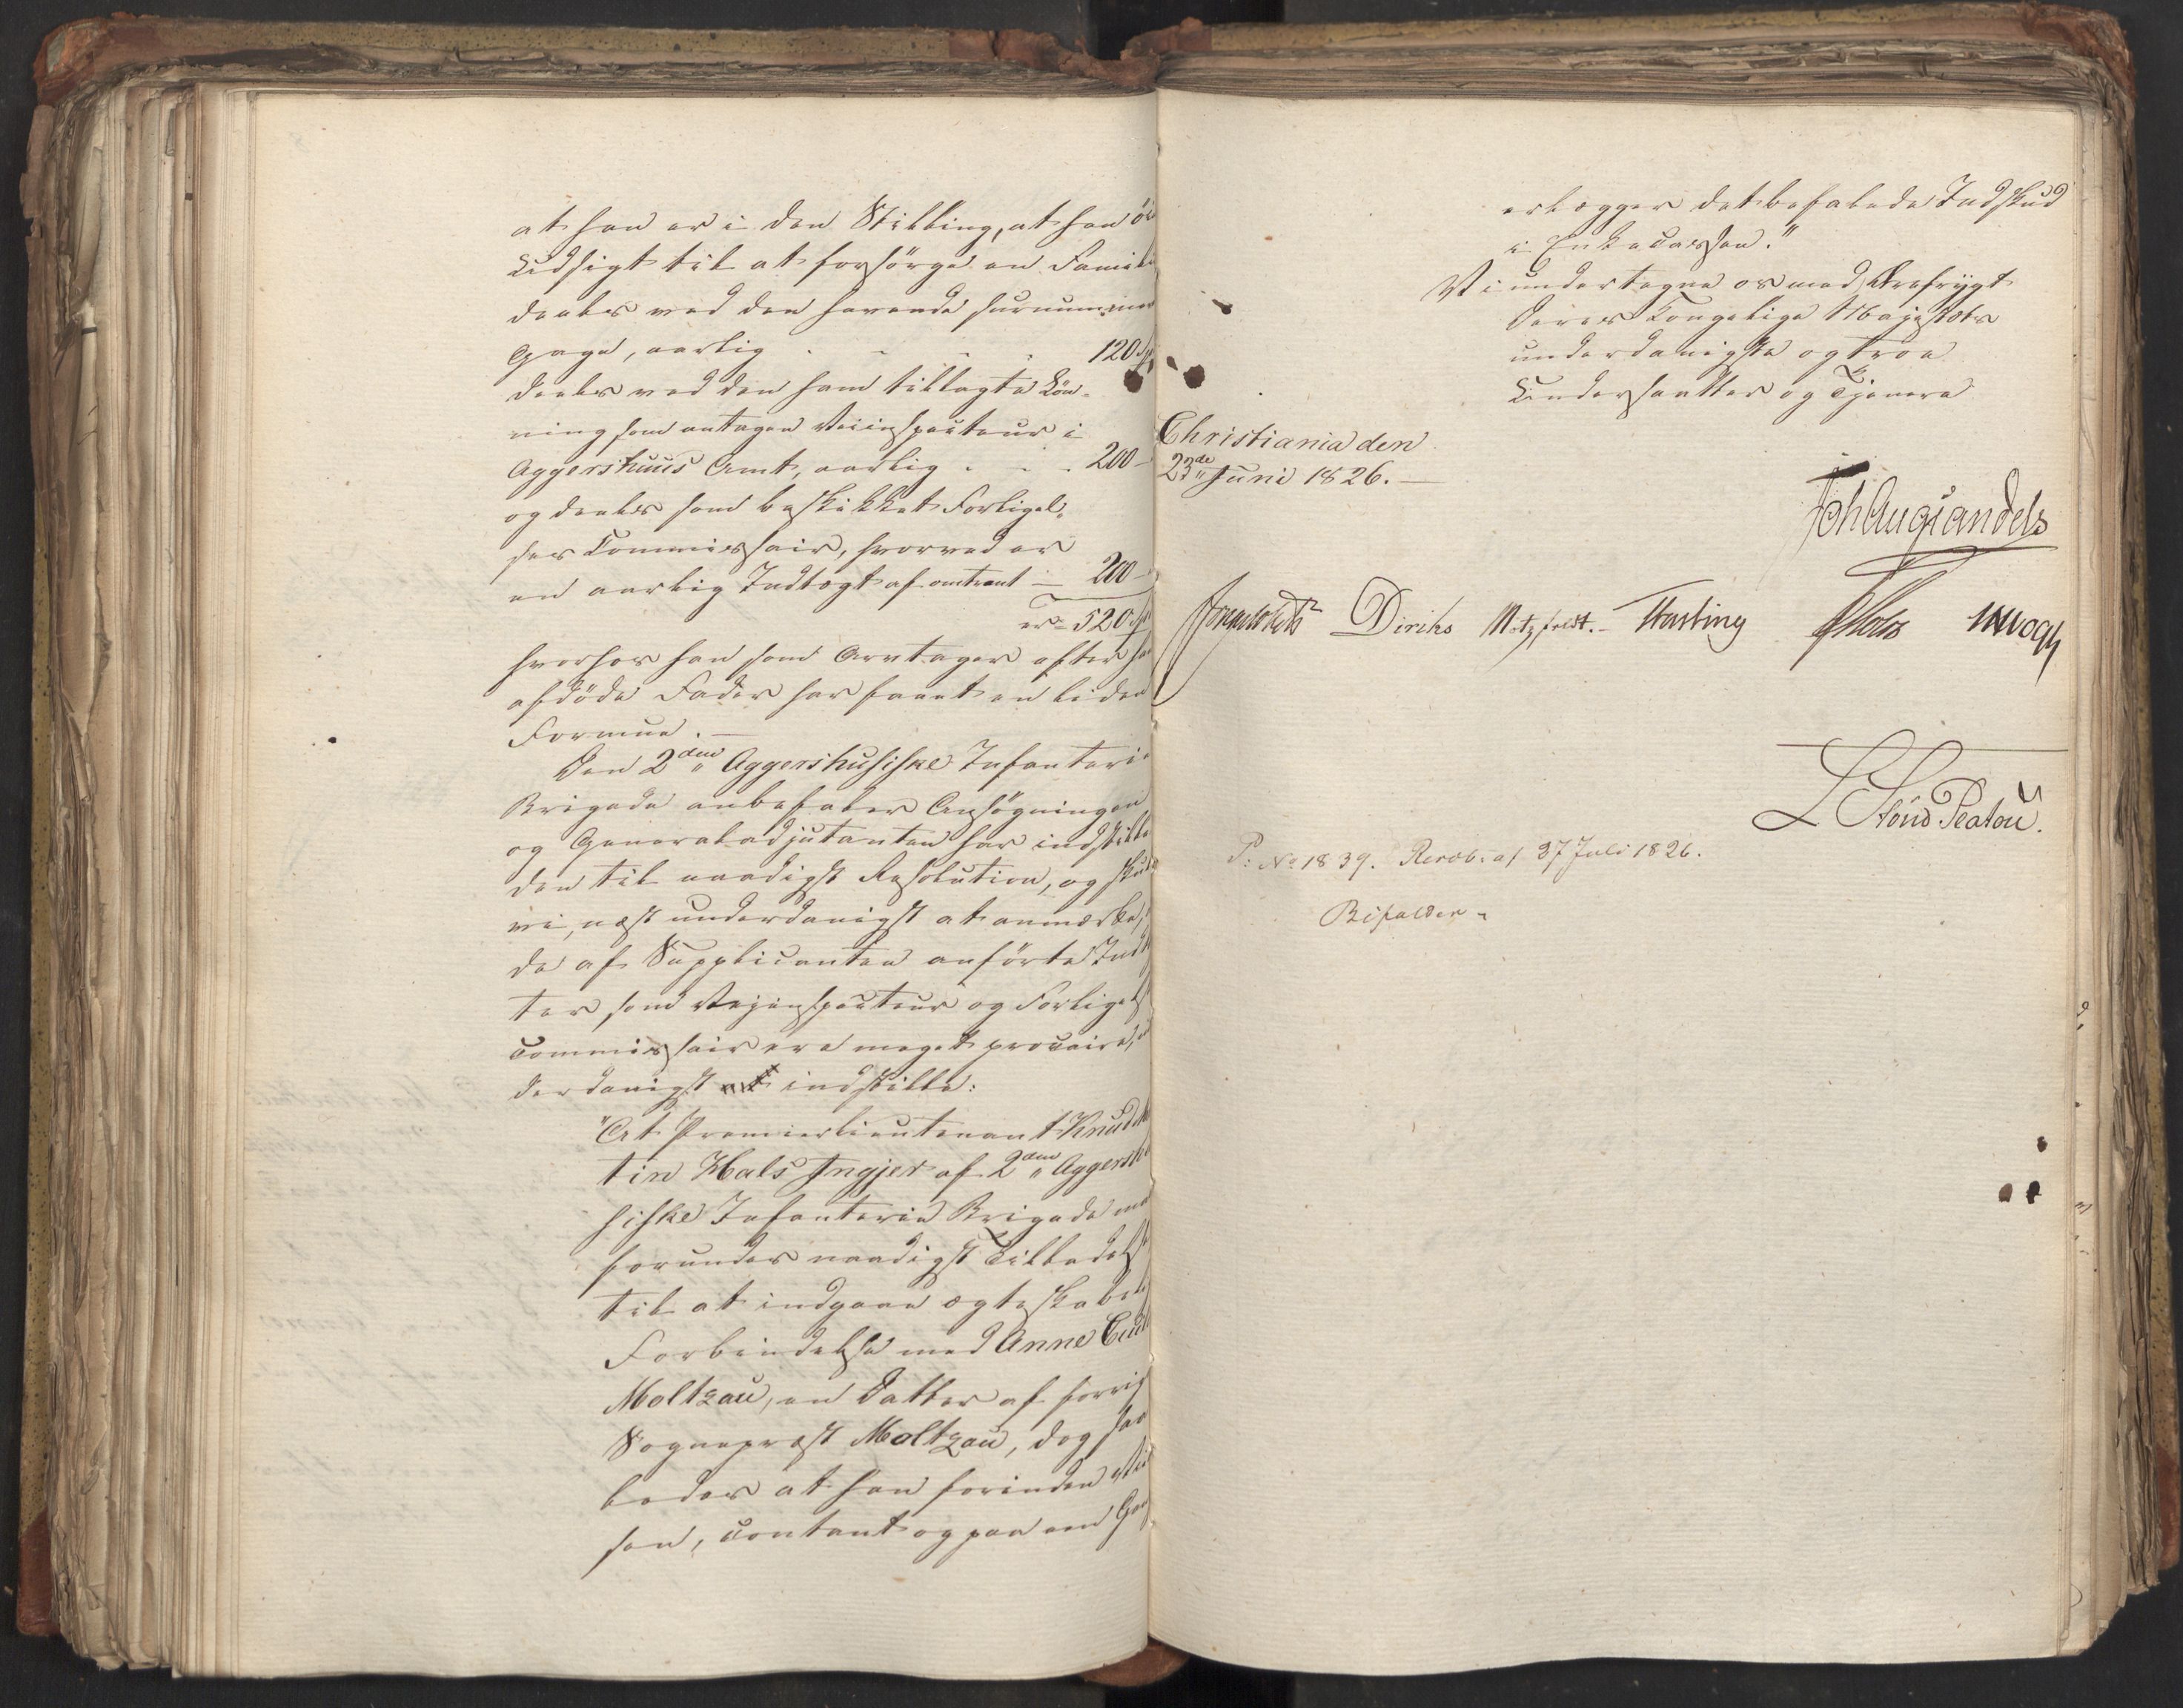 at han er i den Stilling, at han
Udsigt til at forsörge en Famili
deels ved den havende surnummer
Gage, aarlig . . . . 120 Sp
deels ved den ham tillagte Lön-
ning som antagen Veiinspecteur i
Aggershuus Amt, aarlig . . . 200 –
og deels som beskikket Forligel-
ses Commissair, hvorved er
en aarlig Indtægt af omtrent – 200 –
er = 520 Sp
hvorhos han som Arvtager efter
afdöde Fader har faaet en liden
Formue. –
Den 2den Aggershusiske Infanteri
Brigade anbefaler Ansögningen
og Generaladjutanten har indstille
den til naadigst Resolution, og skulle
vi, næst underdanigst at anmærke,
de af Supplicanten anförte Indt
ter som Vejinspecteur og Forligels
Commissair ere meget precaire,
derdanigst indstille:
"At Premierlieutenant Knud
tin Hals Ingjer af 2den Aggershu
siske Infanterie Brigade maa
forundes naadigst Tilladelse
til at indgaae ægteskabelig
Forbindelse med Anne
Moltzau, en Datter af forrig
Sognepræst Moltzau, dog saa
ledes at han forinden
sen, contant og paa een Gang
erlægger det befalede Indskud
i Enkecassen."
Vi undertegne os med Ærefrygt
Deres Kongelige Majestæts
underdanigste og troe
Undersaatter og Tjenere
Christiania den
23de Juni 1826. –
Joh Aug Sandels
Diriks Motzfeldt. – Fasting
L Stoud Platou.
P: No 1839. Resol: af 27 Juli 1826.
Bifalden –